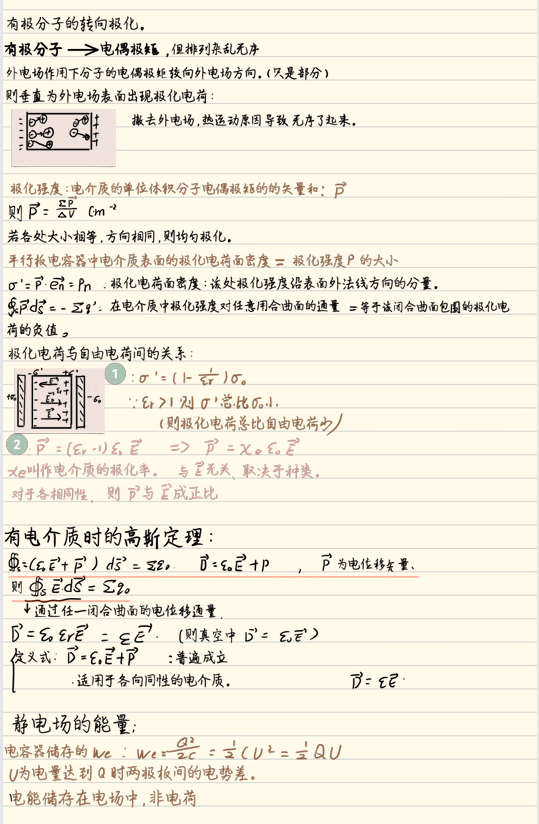 有极分子的转向极化。
有极分子 → 电偶极矩，但排列杂乱无序
外电场作用下分子的电偶极矩转向外电场方向。(只是部分)
则垂直为外电场表面出现极化电荷：
撤去外电场，热运动原因导致无序了起来。
极化强度：电介质的单位体积分子电偶极矩的的矢量和：P⃗
则 P⃗ = ΣP⃗/ΔV Cm⁻²
若各处大小相等，方向相同，则均匀极化。
平行板电容器中电介质表面的极化电荷面密度 = 极化强度P的大小
σ' = P⃗·e⃗n = Pn . 极化电荷面密度：该处极化强度沿表面外法线方向的分量。
∮s P⃗ dS⃗ = -Σq' : 在电介质中极化强度对任意闭合曲面的通量 = 等于该闭合曲面包围的极化电
荷的负值。
极化电荷与自由电荷间的关系：
1 : σ' = (1 - 1/εr) σ₀
∵ εr > 1 则 σ' 总比 σ₀ 小
(则极化电荷总比自由电荷少)
2 : P⃗ = (εr - 1) ε₀ E⃗ => P⃗ = χe ε₀ E⃗
χe叫作电介质的极化率。 与E⃗无关，取决于种类。
对于各相同性，则 P⃗ 与 E⃗ 成正比
有电介质时的高斯定理：
∮s = (ε₀E⃗ + P⃗) dS⃗ = Σq₀. D⃗ = ε₀E⃗ + P , P⃗ 为电位移矢量.
则 ∮s E⃗ dS⃗ = Σq₀
↓ 通过任一闭合曲面的电位移通量
D⃗ = ε₀ εr E⃗ = εE⃗. (则真空中 D⃗ = ε₀E⃗)
定义式: D⃗ = ε₀E⃗ + P⃗ : 普遍成立
.适用于各向同性的电介质。 D⃗ = εE⃗.
静电场的能量：
电容器储存的We : We = Q²/2C = 1/2 CU² = 1/2 QU
U为电量达到Q时两极板间的电势差。
电能储存在电场中，非电荷